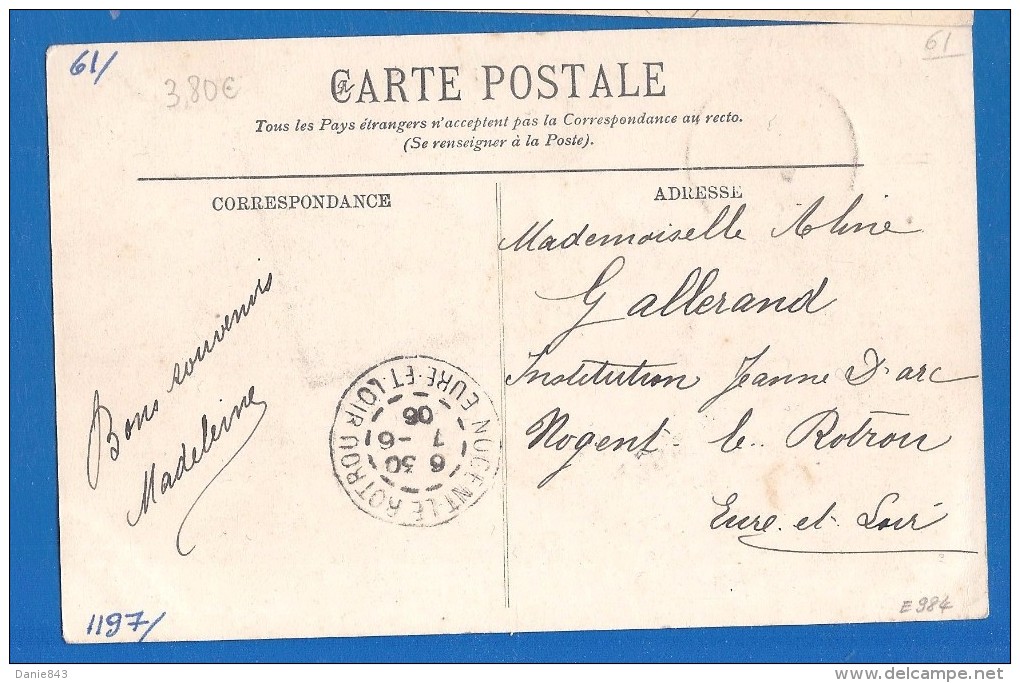 61/
3,80€
61
CARTE POSTALE
Tous les Pays étrangers n'acceptent pas la Correspondance au recto.
(Se renseigner à la Poste).
CORRESPONDANCE
ADRESSE
Bons souvenirs
Madeleine
Mademoiselle Aline
Gallerand
Institution Jeanne D'arc
Nogent-le-Rotrou
Eure-et-Loir
NOGENT-LE-ROTROU EURE-ET-LOIR
6 30
7 -6
06
1197/
E 984
Danie843
www.delcampe.net